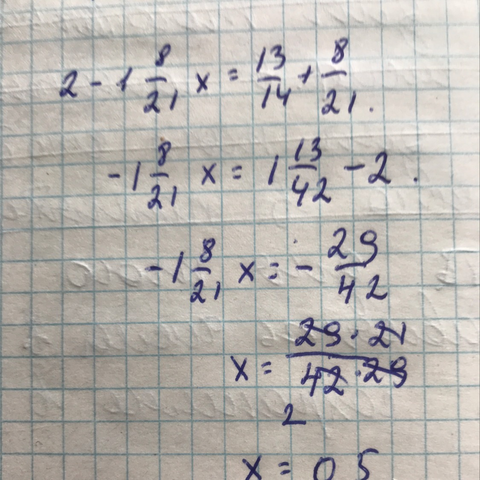 2 - 1 8/21 x = 13/14 + 8/21.
-1 8/21 x = 1 13/42 - 2.
-1 8/21 x = - 29/42
x = 29 · 21 / 42 · 29
2
x = 0 5